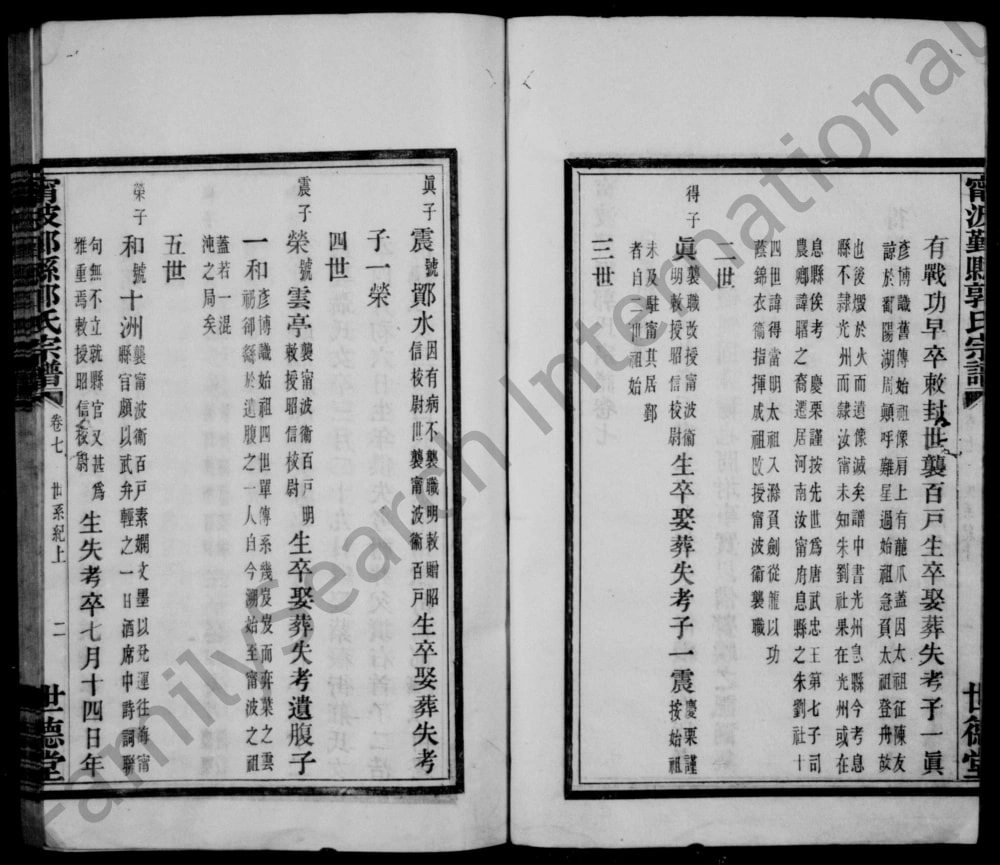 甯波鄞縣郭氏宗譜
世德堂
有戰功早卒敕封世襲百戶生卒娶葬失考子一眞
彥博識舊傳始祖像肩上有龍爪蓋因太祖征陳友
諒於鄱陽湖周顛呼難星過始祖急負太祖登舟故
也後燬於火而遺像滅矣譜中書光州息縣今考息
縣不隸光州而隸汝甯未知朱劉社果在光州或在
息縣俟考 慶栗謹按先世爲唐武忠王第七子司
農卿諱曙之裔遷居河南汝甯府息縣之朱劉社十
四世諱得當明太祖又滁負劍從龍以功
蔭錦衣衞指揮成太祖敗授甯波衞襲職
二世
得子
眞襲職改授甯波衞
明敕授昭信校尉
生卒娶葬失考子一震
慶栗謹
按始祖
未及駐甯其居鄞
者自二世祖始
三世
眞子
震號鄮水
因有病不襲職明敕贈昭
信校尉世襲甯波衞百戶
生卒娶葬失考
子一榮
四世
震子
榮號雲亭
襲甯波衞百戶明
敕授昭信校尉
生卒娶葬失考遺腹子
一和
彥博識始祖四世單傳系幾岌岌而弈葉之雲
礽卻緜於遺腹之一人自今溯始至甯波之祖
蓋若一混
沌之局矣
五世
榮子
和號十洲
襲甯波衞百戶素嫻文墨以兌運往海甯
縣官頗以武弁輕之一日酒席中詩詞聯
句無不立就縣官又甚爲
雅重焉敕授昭信校尉
生失考卒七月十四日年
甯波鄞縣郭氏宗譜
卷七 世系紀上
二
世德堂
FamilySearch International